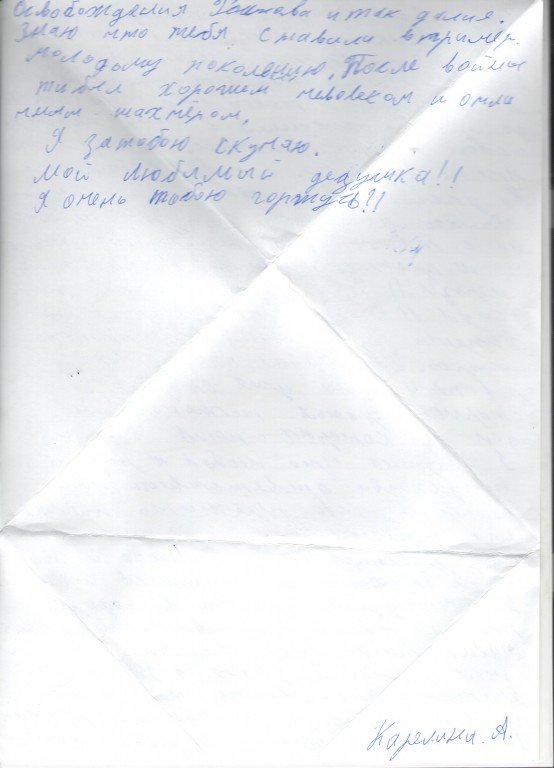 Освобождения Ростова и так далие.
Знаю что тебя ставили в пример
молодому поколению. После войны
ты был хорошем человеком и отли
чным шахтёром.
Я за тобою скучаю.
Мой любимый дедушка!!
Я очень тобою горжусь!!
Карелина. А.